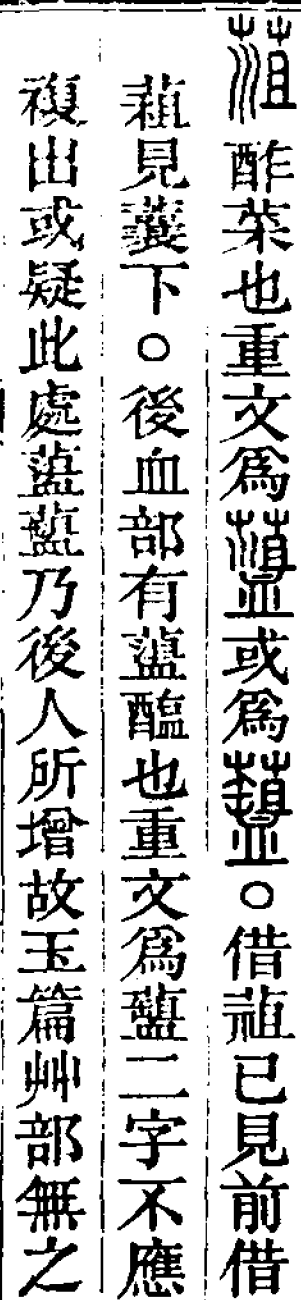 菹酢菜也重文爲或爲○借蒩已見前借
蒩見蘘下○後血部有醢也重文爲二字不應
複出或疑此處乃後人所增故玉篇艸部無之